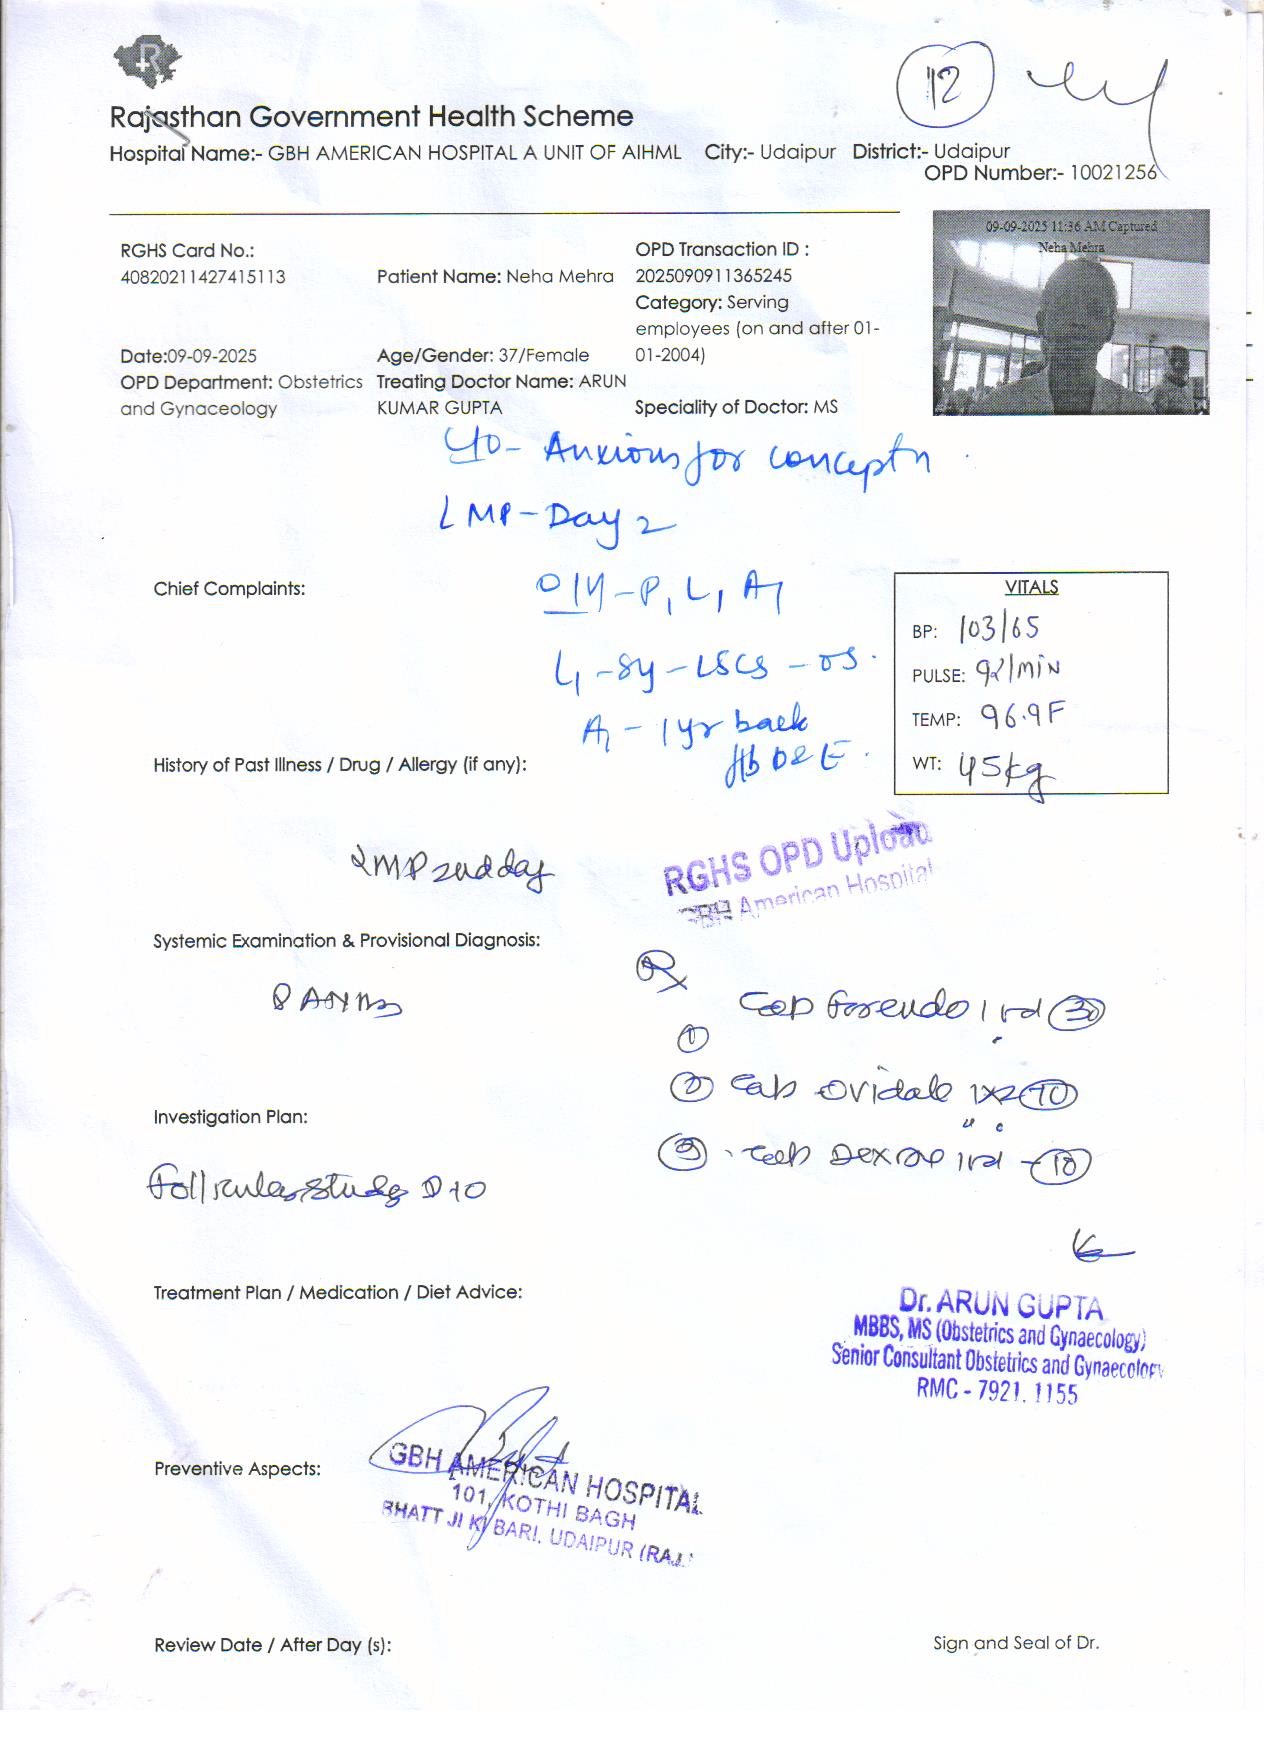 R
Rajasthan Government Health Scheme
12
Hospital Name:- GBH AMERICAN HOSPITAL A UNIT OF AIHML City:- Udaipur District:- Udaipur
OPD Number:- 10021256
09-09-2025 11:36 AM Captured
Neha Mehra
RGHS Card No.:
40820211427415113
Patient Name: Neha Mehra
OPD Transaction ID :
2025090911365245
Category: Serving
employees (on and after 01-
01-2004)
Date:09-09-2025
Age/Gender: 37/Female
OPD Department: Obstetrics
and Gynaceology
Treating Doctor Name: ARUN
KUMAR GUPTA
Speciality of Doctor: MS
C/O - Anxious for conceptn
LMP - Day 2
Chief Complaints:
O/H - P1 L1 A1
L1 - 8y - LSCS - OS.
A1 - 1 yr back
H/O D&E.
VITALS
BP: 103/65
PULSE: 92/min
TEMP: 96.9F
WT: 45kg
History of Past Illness / Drug / Allergy (if any):
LMP 2nd day
RGHS OPD Upload
GBH American Hospital
Systemic Examination & Provisional Diagnosis:
Rx
① Cap 1 30
② Tab 1x2 10
③ 10
Investigation Plan:
Follicular study D10
Treatment Plan / Medication / Diet Advice:
Dr. ARUN GUPTA
MBBS, MS (Obstetrics and Gynaecology)
Senior Consultant Obstetrics and Gynaecology
RMC - 7921. 1155
Preventive Aspects:
GBH AMERICAN HOSPITAL
101, KOTHI BAGH
BHATT JI KI BARI, UDAIPUR (RAJ.)
Review Date / After Day (s):
Sign and Seal of Dr.